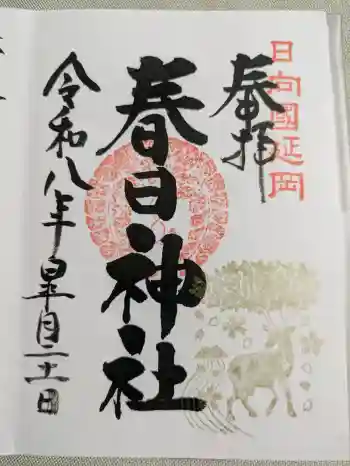 日向國延岡
奉拝
春日神社
令和八年皐月二十一日